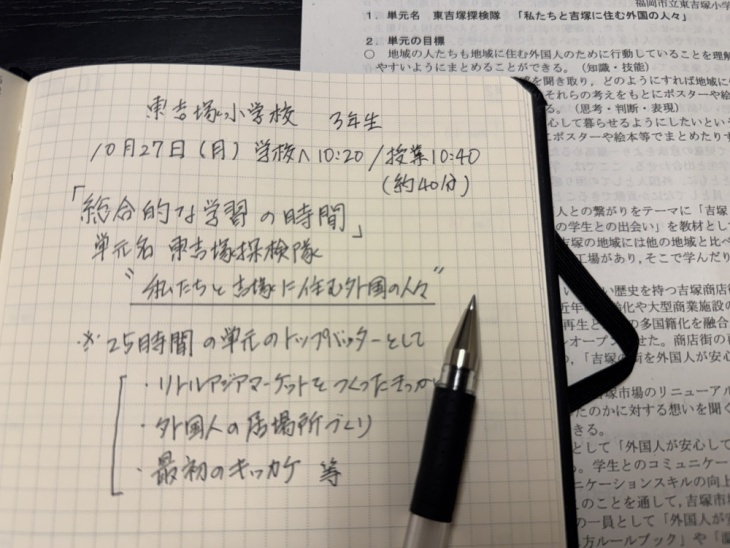 東吉塚小学校 3年生
10月27日(月) 学校へ10:20/授業10:40
(約40分)
「総合的な学習の時間」
単元名 東吉塚探検隊
"私たちと吉塚に住む外国の人々"
※25時間の単元のトップバッターとして
・リトルアジアマーケットをつくったきっか
・外国人の居場所づくり
・最初のキッカケ 等
福岡市立東吉塚小学
1.単元名 東吉塚探検隊 「私たちと吉塚に住む外国の人々」
2.単元の目標
○ 地域の人たちも地域に住む外国人のために行動していることを理解
やすいようにまとめることができる。(知識・技能)
を聞き取り、どのようにすれば地域に
それらの考えをもとにポスターや絵
る。(思考・判断・表現)
心して暮らせるようにしたいという
にポスターや絵本等でまとめたりす
人との繋がりをテーマに「吉塚
の学生との出会い」を教材とし
吉塚の地域には他の地域と比べ
工場があり、そこで学んだり
い歴史を持つ吉塚商店街
近年 化や大型商業施設の
再生と の多国籍化を融合
オープンさせた。商店街の再
の、「吉塚の街を外国人が安心
吉塚市場のリニューアル
たのかに対する想いを聞く
きる。
として「外国人が安心して
る。学生とのコミュニケー
ニケーションスキルの向上
このことを通して、吉塚市場
の一員として「外国人が安
方ルールブック」や「温